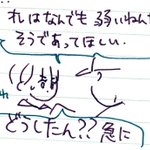 れはなんでも弱いねん
そうであってほしい.
れ
どうしたん??急に